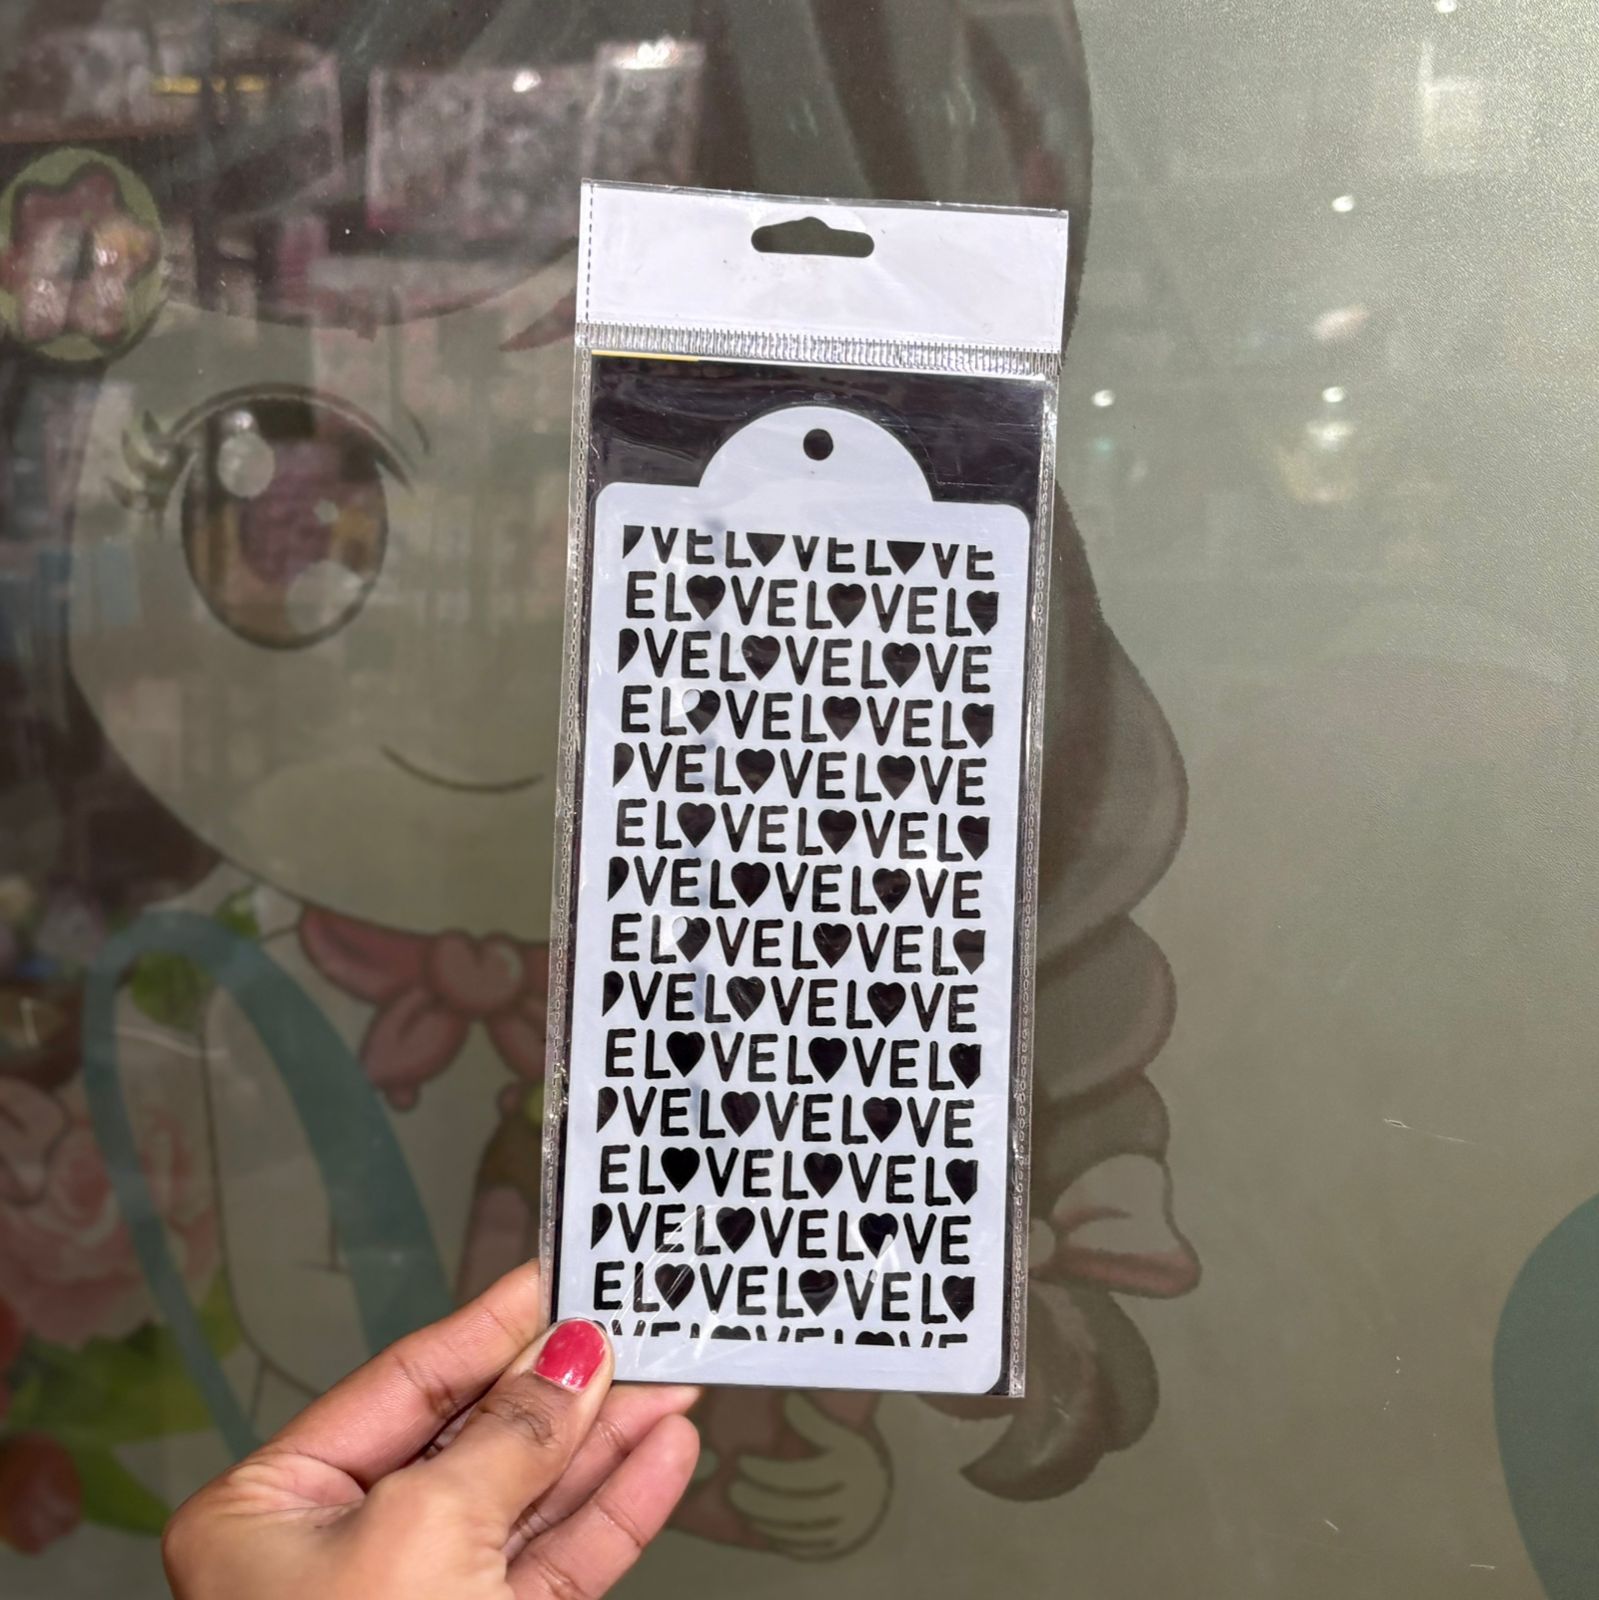 VELOVELOVE
ELOVELOVELO
OVELOVELOVE
ELOVELOVELO
OVELOVELOVE
ELOVELOVELO
OVELOVELOVE
ELOVELOVELO
OVELOVELOVE
ELOVELOVELO
OVELOVELOVE
ELOVELOVELO
OVELOVELOVE
ELOVELOVELO
OVELOVELOVE